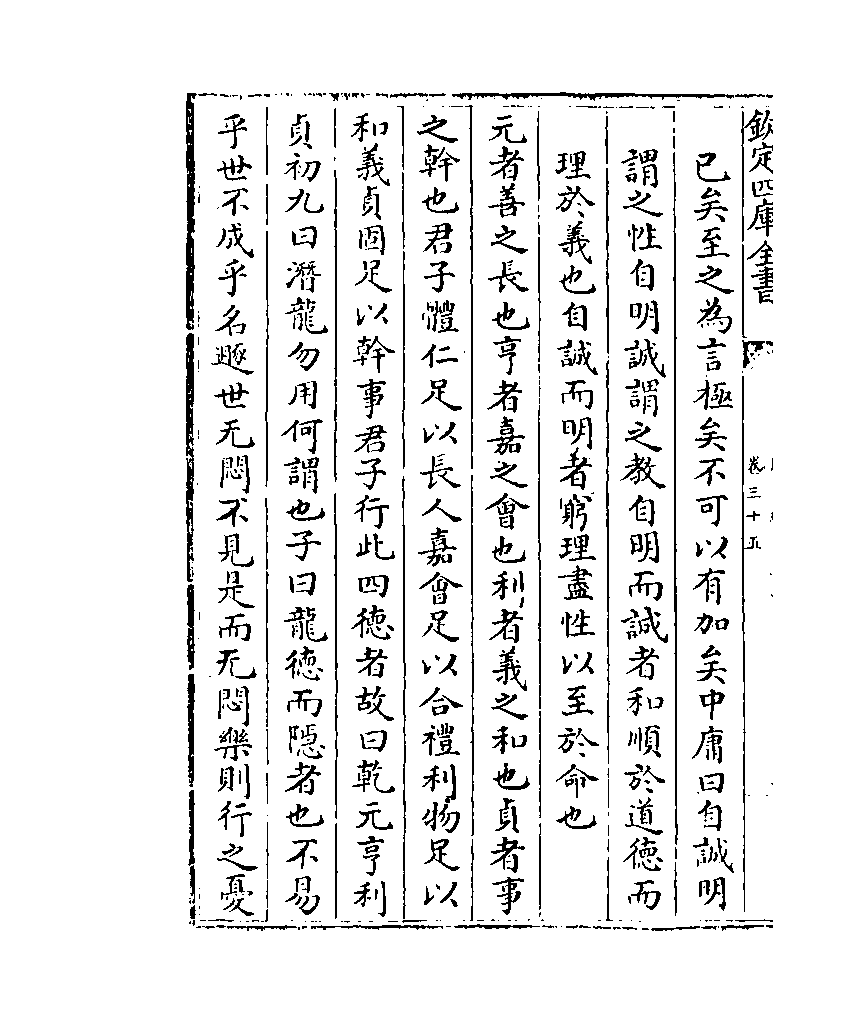 欽定四庫全書
卷三十五
已矣至之為言極矣不可以有加矣中庸曰自誠明
謂之性自明誠謂之教自明而誠者和順於道德而
理於義也自誠而明者窮理盡性以至於命也
元者善之長也亨者嘉之會也利者義之和也貞者事
之幹也君子體仁足以長人嘉會足以合禮利物足以
和義貞固足以幹事君子行此四德者故曰乾元亨利
貞初九曰潛龍勿用何謂也子曰龍德而隱者也不易
乎世不成乎名遯世无悶不見是而无悶樂則行之憂